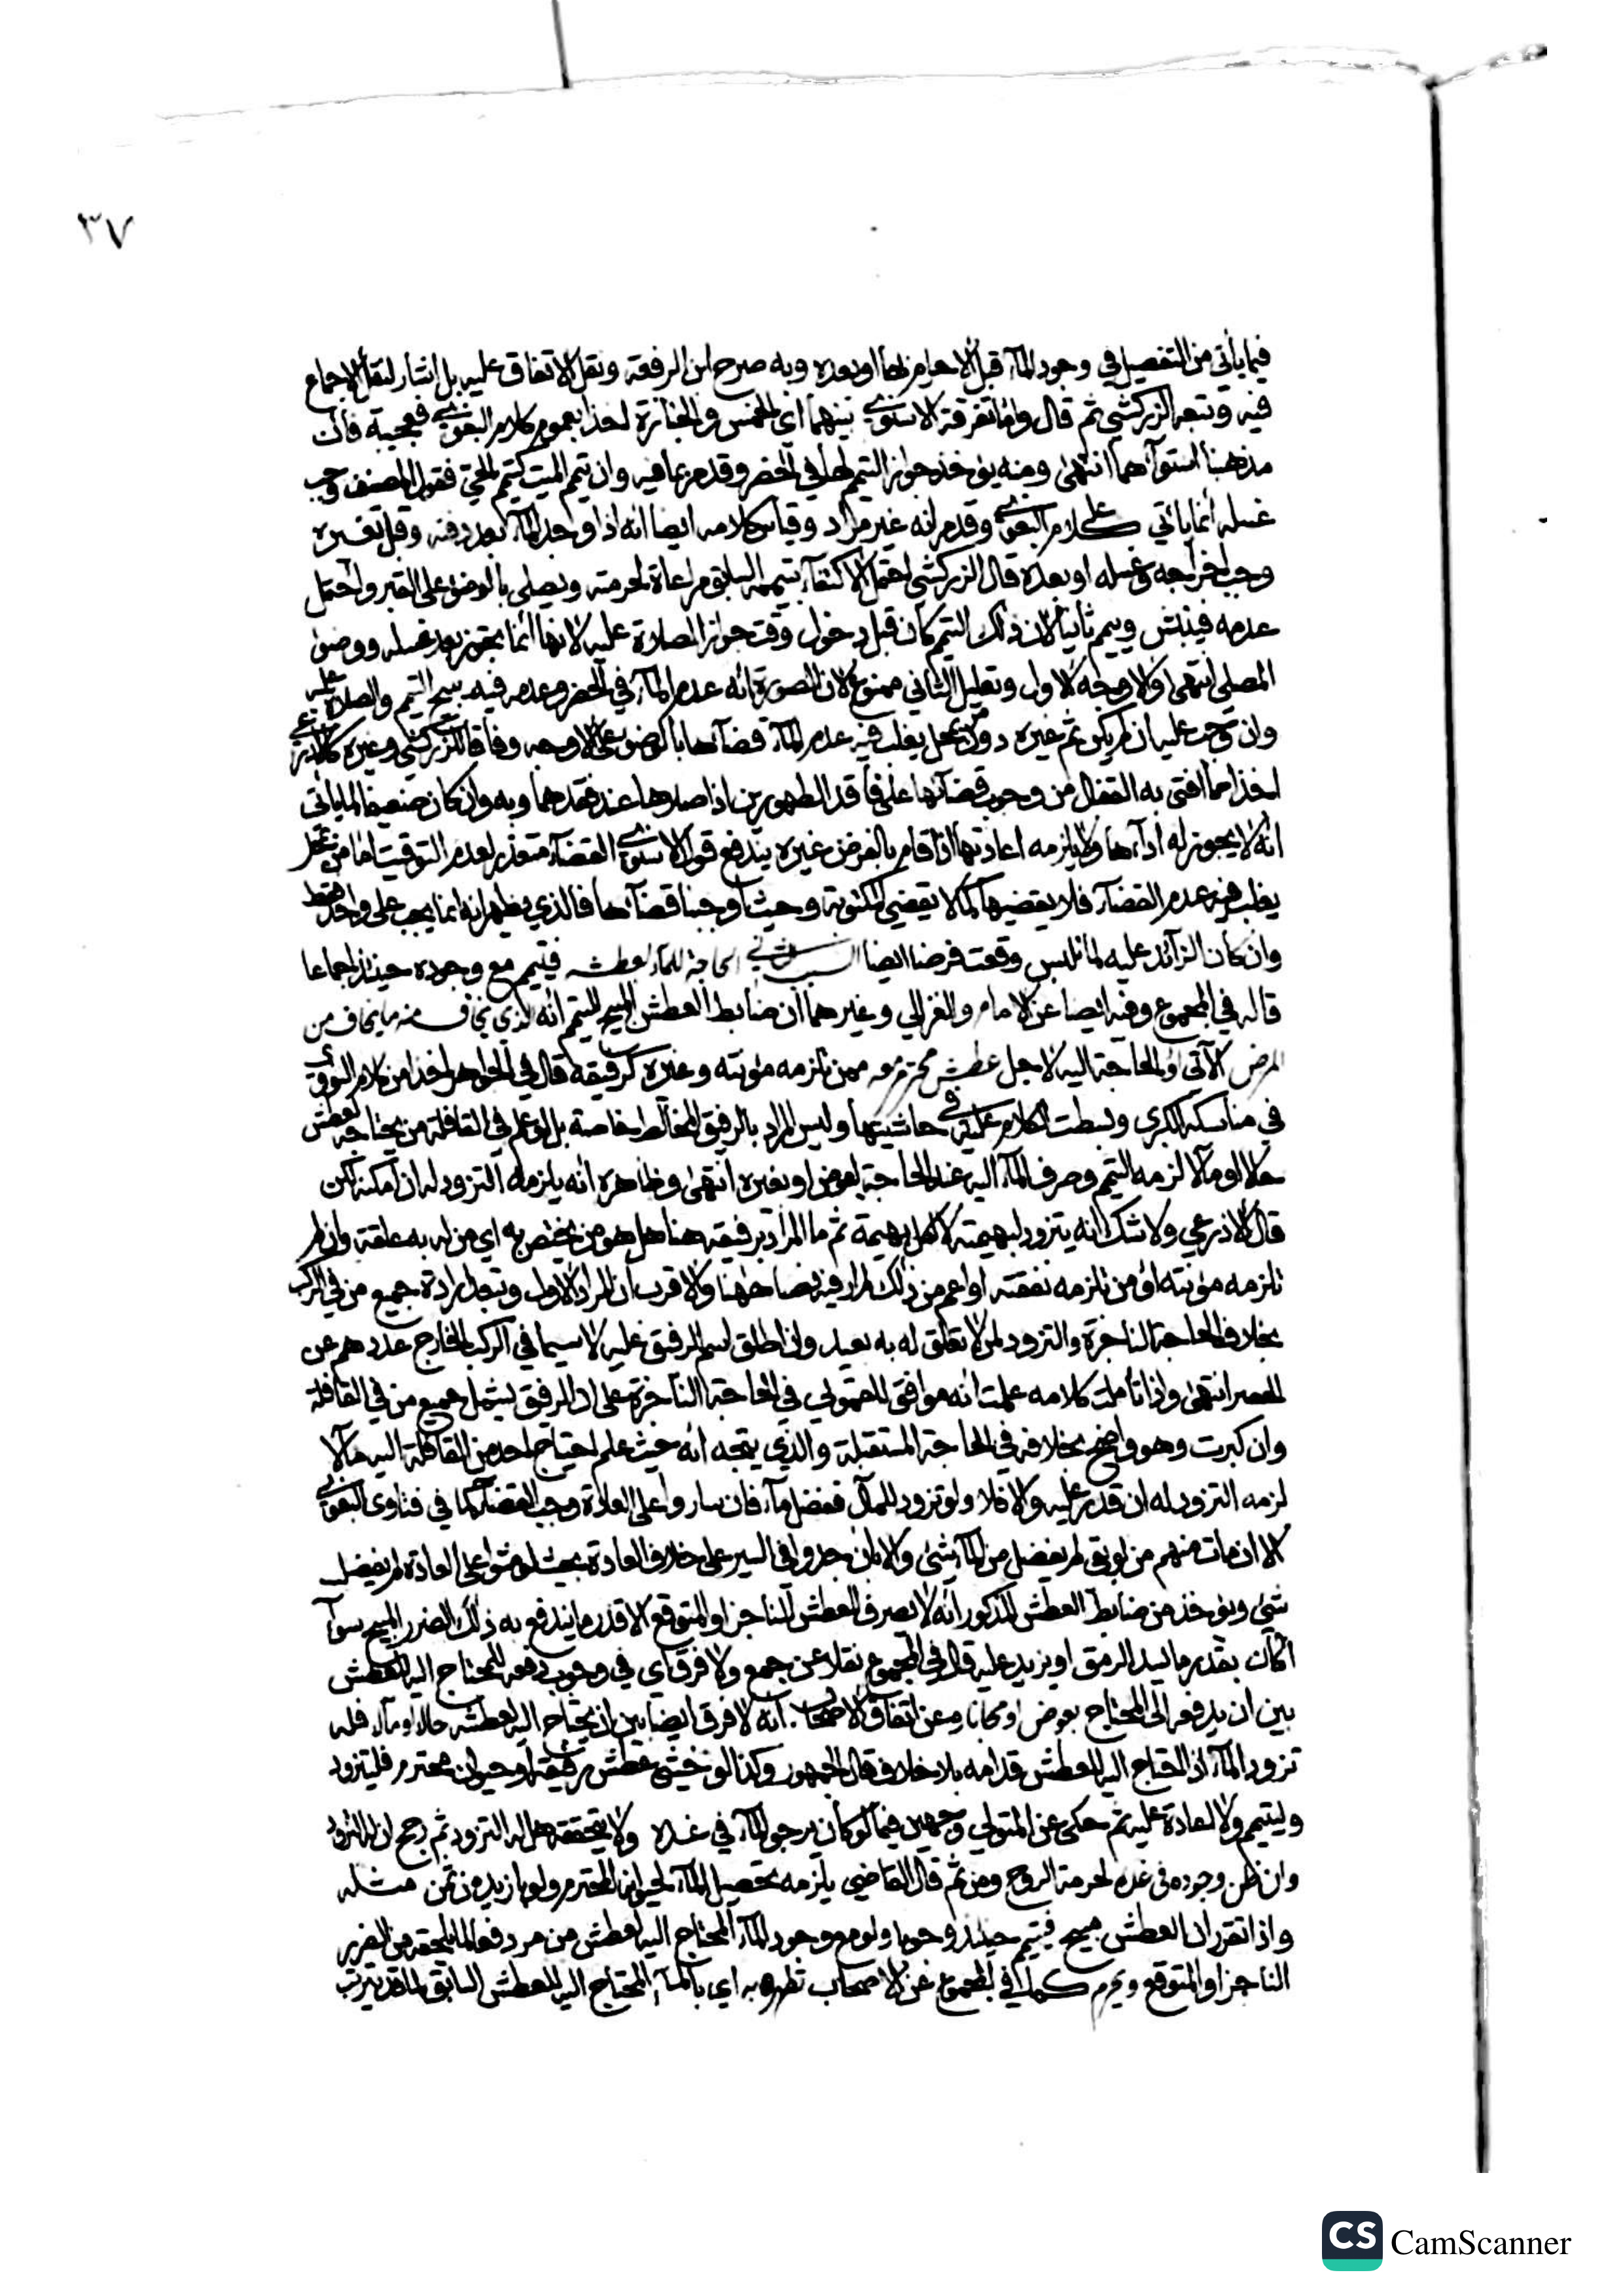 ٣٧
فيما يأتي من التفصيل في وجود الماء قبل الاحرام بها او بعده وبه صرح ابن الرفعة ونقل الاتفاق عليه بل اشار لنقل الاجماع
فيه وتبعه الزركشي ثم قال واما تفرقة الاسنوي بينهما اي الخمس والجنازة اخذا بعموم كلام البغوي فعجيبة فان
مذهبنا استواهما انتهى ومنه يؤخذ جواز التيمم لها في الحضر وقدم بما فيه وان تيمم الميت كتيمم الحي فقول المصنف وجب
غسله انما ياتي على كلام البغوي وقدم انه غير مراد وقياس كلامه ايضا انه اذا وجد الماء بعد دفنه وقبل تغيره
وجب اخراجه وغسله او بعده قال الزركشي احتمل الاكتفاء بتيممه السابق مراعاة لحرمته ويصلى بالوضوء على القبر واحتمل
عدمه فينبش وييمم ثانيا لان ذلك التيمم كان قبل دخول وقت جواز الصلاة عليه لانها انما تجوز بعد غسله ووضوء
المصلي انتهى والاوجه الاول وتعليل الثاني ممنوع لان الصورة انه عدم الماء في الحضر وعدمه فيه يبيح التيمم والصلاة عليه
وان وجب عليه ان لم يكن ثم غيره دون محل يغلب فيه عدم الماء قضاها بالوضوء على الاوجه وفاقا للزركشي وغيره كالاذرعي
اخذا مما افتى به القفال من وجوب قضائها على فاقد الطهورين اذا صلاها عند فقدهما وبه وان كان ضعيفا لما ياتي
انه لا يجوز له اداءها ولا يلزمه اعادتها اذا قام بالفرض غيره يندفع قول الاسنوي القضاء متعذر لعدم التوقيت اما من بمحل
يغلب فيه عدم القضاء فلا يقضيها كما لا يقضي المكتوبة وحيث اوجبنا قضاءها فالذي يظهر انه انما يجب على واحد فقط
وان كان الزائد عليه لما تلبس وقعت فرضا ايضا السبب الثاني الحاجة للماء لعطشه فيتيمم مع وجوده حينئذ اجماعا
قاله في المجموع وفيه ايضا عن الامام والغزالي وغيرهما ان ضابط العطش المبيح للتيمم انه الذي يخاف منه ما يخاف من
المرض الآتي او الحاجة اليه لاجل عطش محترم معه ممن تلزمه مؤنته وغيره كرفيقه قال في الجواهر اخذا من كلام النووي
في مناسكه الكبرى وبسطت الكلام عليه في حاشيتها وليس المراد بالرفيق المخالط خاصة بل لو علم في القافلة من يحتاجه لعطش
حالا او مالا لزمه التيمم وصرف الماء اليه عند الحاجة بعوض او بغيره انتهى وظاهره انه يلزمه التزود له ان امكنه لكن
قال الاذرعي ولا شك انه يتزود لبهيمته لا لكل بهيمة ثم ما المراد برفيقه هنا هل هو من يختص به اي من له به علقة وان لم
تلزمه مؤنته او من تلزمه نفقته او اعم من ذلك لم ار فيه نصا هنا والاقرب ان المراد الاول ويبعد ارادة جميع من في الركب
بخلاف الحاجة الناجزة والتزود لمن لا تعلق له به بعيد وان اطلق اسم الرفيق عليه لا سيما في الركب الخارج عددهم عن
الحصر انتهى واذا تاملت كلامه علمت انه موافق للقمولي في الحاجة الناجزة على ان الرفيق يشمل جميع من في القافلة
وان كبرت وهو واضح بخلافه في الحاجة المستقبلة والذي يتجه انه حيث علم احتياج احد من القافلة اليه مآلا
لزمه التزود له ان قدر عليه والا فلا ولو تزود للمآل ففضل ماء فان ساروا على العادة وجب القضاء كما في فتاوى البغوي
لا ان مات منهم من لو بقي لم يفضل من الماء شئ والا بان جدوا في السير على خلاف العادة بحيث لو مشوا على العادة لم يفضل
شئ ويؤخذ من ضابط العطش المذكور انه لا يصرف للعطش الناجز او المتوقع الا قدر ما يندفع به ذلك الضرر المبيح سواء
اكان بقدر ما يسد الرمق او يزيد عليه قال في المجموع نقلا عن جمع ولا فرق اي في وجوب دفعه للمحتاج اليه للعطش
بين ان يدفعه الى المحتاج بعوض او مجانا وعن اتفاق الاصحاب انه لا فرق ايضا بين ان يحتاج اليه لعطشه حالا او مآلا فله
تزود الماء اذا احتاج اليه للعطش قدامه بلا خلاف قال الجمهور وكذا لو خشي عطش رفيقه او حيوان محترم فليتزود
وليتيمم ولا اعادة عليه ثم حكى عن المتولي وجهين فيما لو كان يرجو الماء في غده ولا يتحققه هل له التزود ثم رجح ان له التزود
وان ظن وجوده في غده لحرمة الروح ومن ثم قال القاضي يلزمه تحصيل الماء لحيوانه المحترم ولو بازيد من ثمن مثله
واذا تقرر ان العطش مبيح فيتيمم حينئذ وجوبا ولو مع وجود الماء المحتاج اليه لعطش من مر دفعا لما يلحقه من الضرر
الناجز او المتوقع ويحرم كما في المجموع عن الاصحاب تطهره به اي بالماء المحتاج اليه للعطش السابق لما قد يترتب
CS CamScanner